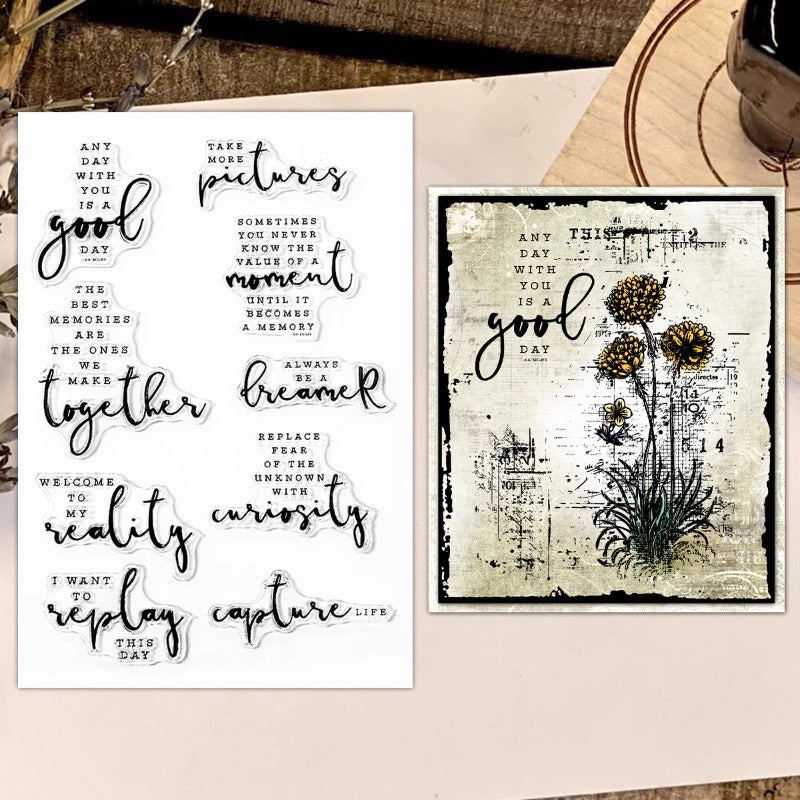 ANY
DAY
WITH
YOU
IS A
good
DAY
TAKE
MORE
pictures
SOMETIMES
YOU NEVER
KNOW THE
VALUE OF A
moment
UNTIL IT
BECOMES
A MEMORY
THE
BEST
MEMORIES
ARE
THE ONES
WE
MAKE
together
ALWAYS
BE A
dreameR
REPLACE
FEAR
OF THE
UNKNOWN
WITH
curiosity
WELCOME
TO
MY
reality
I WANT
TO
replay
THIS
DAY
capture LIFE
THIS
ANY
DAY
WITH
YOU
IS A
good
DAY
directes
5 14